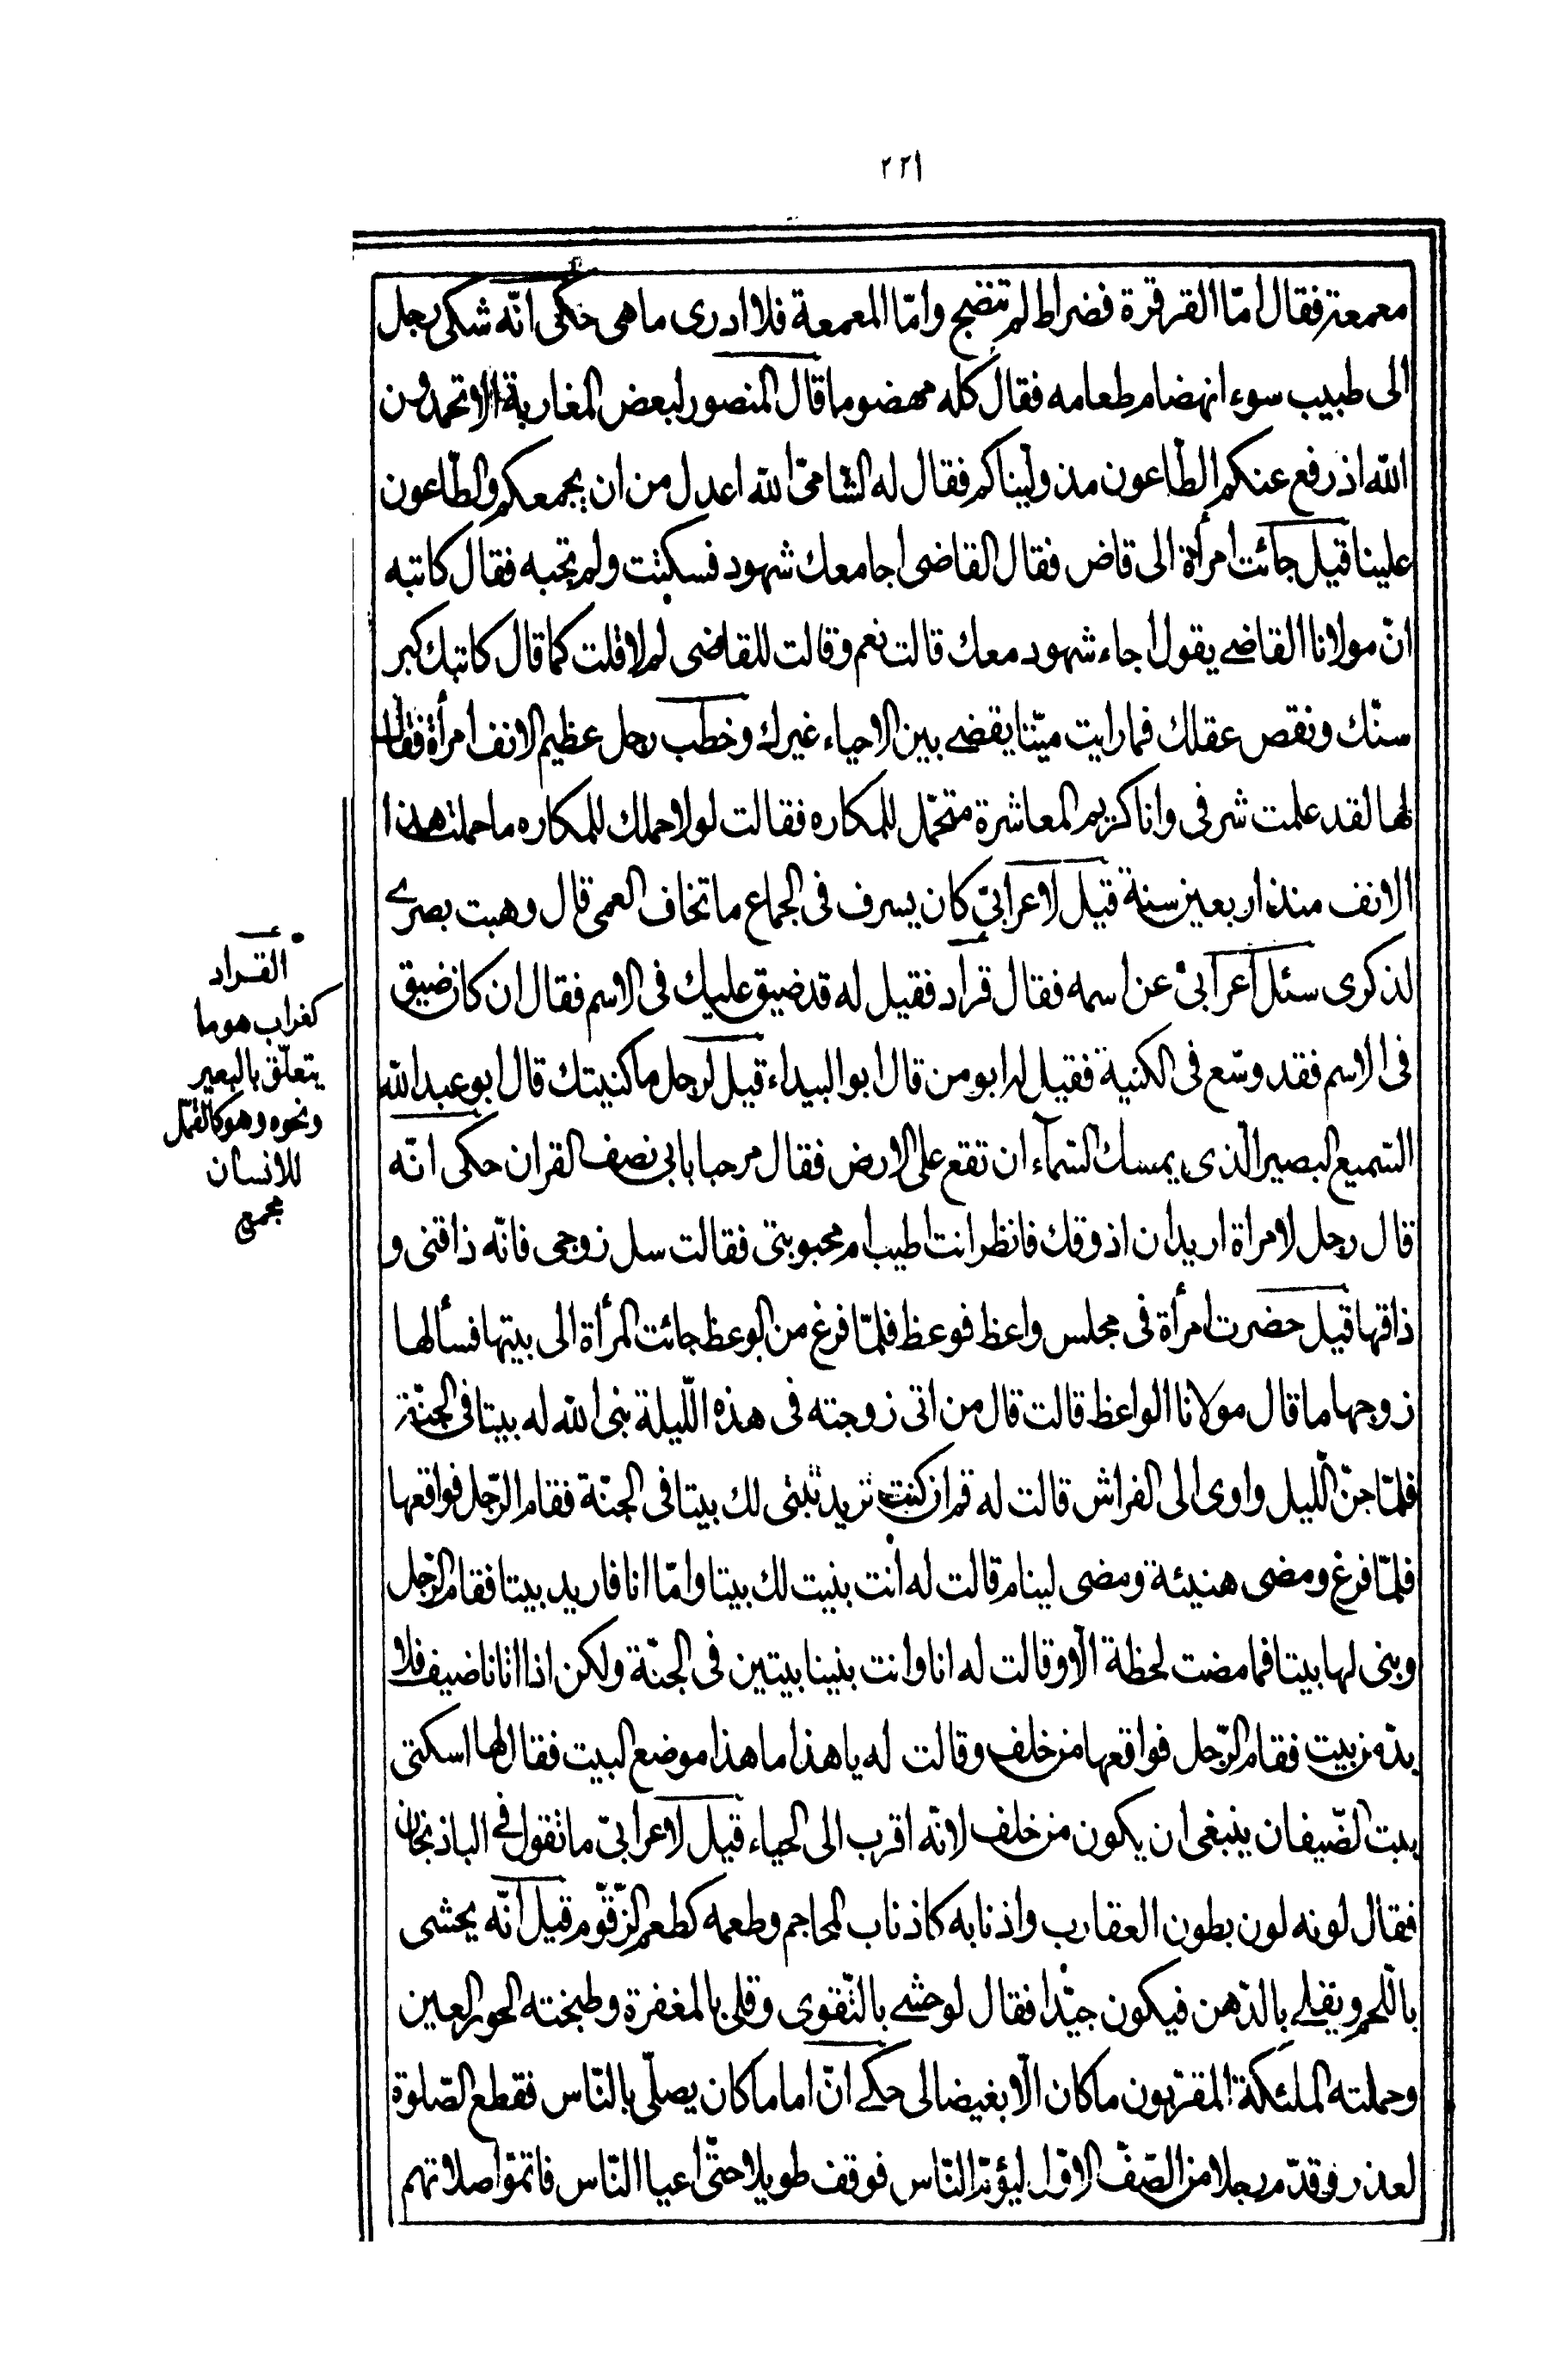 ٢٢١
معمعة فقال امّا القرقرة فضراط لم تنضج وامّا المعمعة فلا ادرى ما هى حكى انّه شكى رجل
الى طبيب سوء انهضام طعامه فقال كله مهضوما قال المنصور لبعض المغاربة الا تحمدون
الله اذ رفع عنكم الطّاعون مذ ولّيناكم فقال له الشّامىّ الله اعدل من ان يجمعكم والطّاعون
علينا قيل جائت امرأة الى قاض فقال القاضى اجامعك شهود فسكتت ولم تجبه فقال كاتبه
انّ مولانا القاضى يقول اجاء شهود معك قالت نعم وقالت للقاضى لم لا قلت كما قال كاتبك كبر
سنّك ونقص عقلك فما رايت ميّتا يقضى بين الاحياء غيرك وخطب رجل عظيم الانف امرأة فقال
لها لقد علمت شرفى وانا كريم المعاشرة متحمّل للمكاره فقالت لولا حملك للمكاره ما حملت هذا
الانف منذ اربعين سنة قيل لاعرابىّ كان يسرف فى الجماع ما تخاف العمى قال وهبت بصرى
لذكرى سئل اعرابىّ عن اسمه فقال قراد فقيل له قد ضيق عليك فى الاسم فقال ان كان ضيق
فى الاسم فقد وسّع فى الكنية فقيل له ابو من قال ابو البيداء قيل لرجل ما كنيتك قال ابو عبد الله
السّميع البصير الّذى يمسك السّمآء ان تقع على الارض فقال مرحبا بابى نصف القران حكى انّه
قال رجل لامراة اريد ان اذوقك فانظر انت اطيب ام محبوبتى فقالت سل زوجى فانّه ذاقنى و
ذاقها قيل حضرت امرأة فى مجلس واعظ فوعظ فلمّا فرغ من الوعظ جائت المرأة الى بيتها فسألها
زوجها ما قال مولانا الواعظ قالت قال من اتى زوجته فى هذه اللّيلة بنى الله له بيتا فى الجنّة
فلمّا جنّ اللّيل واوى الى الفراش قالت له قم ان كنت تريد تبتنى لك بيتا فى الجنّة فقام الرّجل فواقعها
فلمّا فرغ ومضى هنيئة ومضى لينام قالت له انت بنيت لك بيتا وامّا انا فاريد بيتا فقام الرّجل
وبنى لها بيتا فما مضت لحظة الّا وقالت له انا وانت بنينا بيتين فى الجنّة ولكن اذا اتانا ضيف فلا
بدّ من بيت فقام الرّجل فواقعها من خلف وقالت له يا هذا ما هذا موضع البيت فقال لها اسكتى
بيت الضّيفان ينبغى ان يكون من خلف لانّه اقرب الى الحياء قيل لاعرابىّ ما تقول فى الباذنجان
فقال لونه لون بطون العقارب واذنابه كاذناب المحاجم وطعمه كطعم الزّقّوم قيل انّه يحشى
باللّحم ويقلى بالدّهن فيكون جيّدا فقال لو حشى بالتّقوى وقلى بالمغفرة وطبخته الحور العين
وحملته الملئكة المقرّبون ما كان الّا بغيضا لى حكى انّ اماما كان يصلّى بالنّاس فقطع الصّلوة
لعذر وقدّم رجلا من الصّفّ الاوّل ليؤمّ النّاس فوقف طويلا حتّى اعيا النّاس فاتمّوا صلاتهم
القراد
كغراب هو ما
يتعلّق بالبعير
ونحوه وهو كالقمّل
للانسان
مجمع